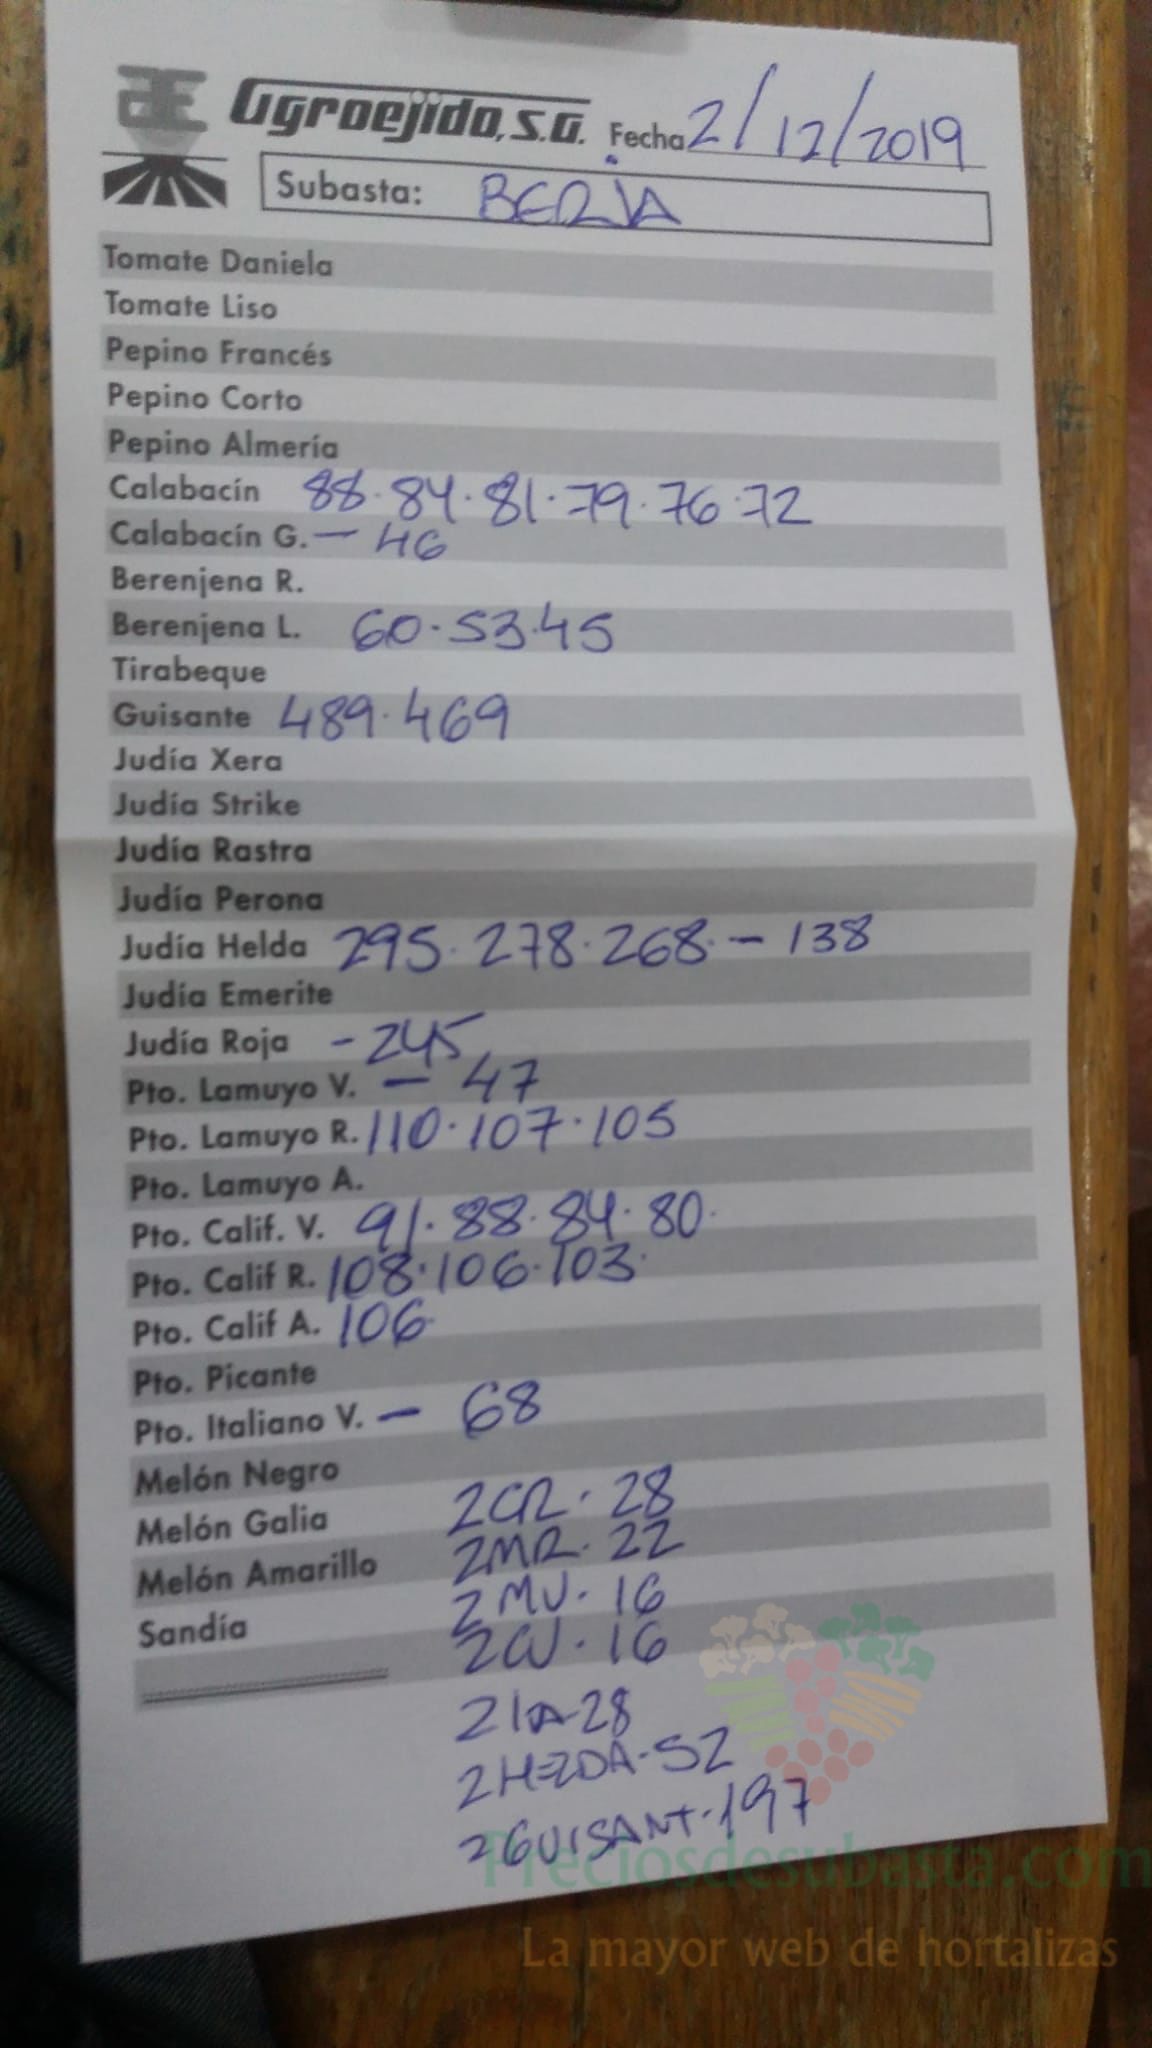 Agroejido, S.A. Fecha 2/12/2019
Subasta: BERJA
Tomate Daniela
Tomate Liso
Pepino Francés
Pepino Corto
Pepino Almería
Calabacín 88.84.81.79.76.72
Calabacín G. - 46
Berenjena R.
Berenjena L. 60.53.45
Tirabeque
Guisante 489.469
Judía Xera
Judía Strike
Judía Rastra
Judía Perona
Judía Helda 295.278.268. - 138
Judía Emerite
Judía Roja - 245
Pto. Lamuyo V. - 47
Pto. Lamuyo R. 110.107.105
Pto. Lamuyo A.
Pto. Calif. V. 91.88.84.80.
Pto. Calif R. 108.106.103.
Pto. Calif A. 106.
Pto. Picante
Pto. Italiano V. - 68
Melón Negro
Melón Galia 2CR. 28
Melón Amarillo 2MR. 22
Sandía 2MV. 16
2CV. 16
2IA-28
2HELDA-52
2GUISANT.197
Preciosdesubasta.com
La mayor web de hortalizas